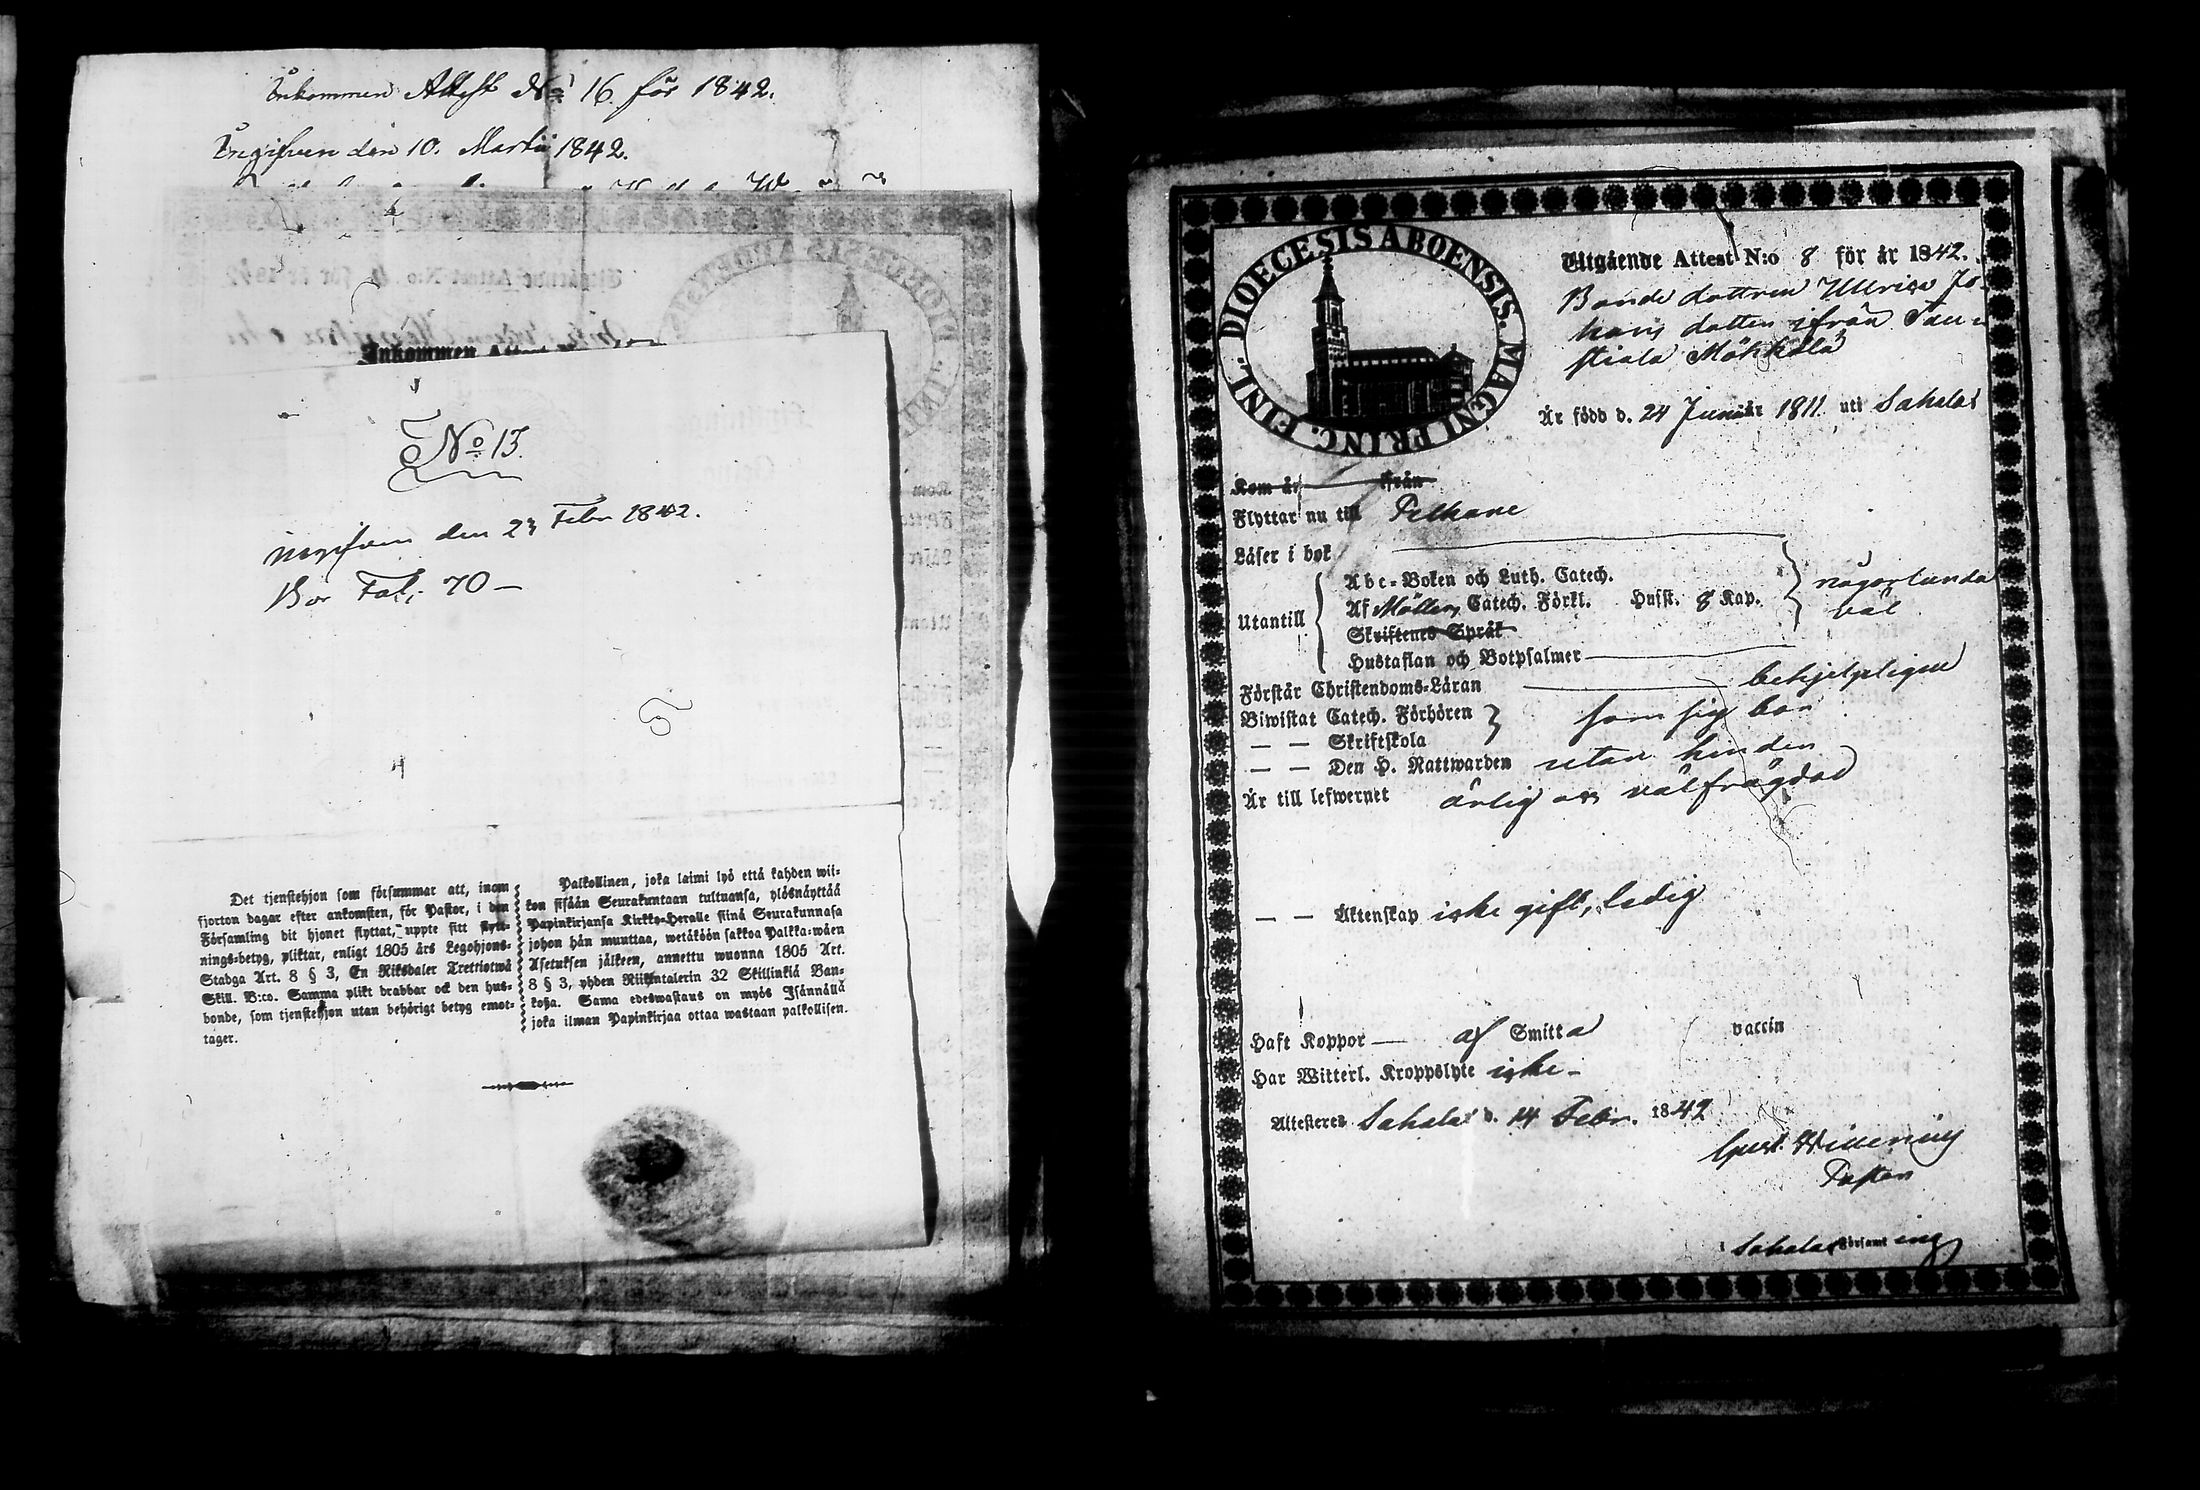 Inkommen Attest No 16 för 1842.
Ingifven den 10. Martii 1842.
Inkommen
No 13.
ingifven den 23 Febr 1842.
Bor Fol: 70 —
Det tjenstehjon som försummar att, inom
fjorton dagar efter ankomsten, för Pastor, i den
Församling dit hjonet flyttat, uppte sitt flytt-
nings-betyg, pliktar, enligt 1805 års Legohjons-
Stadga Art. 8 § 3, En Riksdaler Trettiotwå
Skill. B:co. Samma plikt drabbar ock den hus-
bonde, som tjenstehjon utan behörigt betyg emot-
tager.
Palkollinen, joka laimi lyö että kahden wii-
kon sisään Seurakuntaan tultuansa, ylösnäyttää
Papinkirjansa Kirkko-Heralle siinä Seurakunnasa
johon hän muuttaa, wetäköön sakkoa Palkka-wäen
Asetuksen jälkeen, annettu wuonna 1805 Art.
8 § 3, yhden Riikintalerin 32 Skillinkiä Ban-
koßa. Sama edeswastaus on myös Isännällä
joka ilman Papinkirjaa ottaa wastaan palkollisen.
DIOECESIS ABOENSIS. MAGNI PRINC. FINL.
Utgående Attest N:o 8 för år 1842.
Bonde dottren Ullrica Jo-
hans dotter ifrån Tau-
stiala Mökkälä
Är född d. 24 Junii år 1811 uti Sahalax
Kom år ifrån
Flyttar nu till Pelkäne
Läser i bok
Utantill
Abc-Boken och Luth. Catech.
Af Möllers Catech. Förkl. Husst. 8 Kap.
Skriftenes Språk
Hustaflan och Botpsalmer
någorlunda
väl
Förstår Christendoms-Läran behjelpligen
Biwistat Catech. Förhören
— — Skriftskola
som sig bör
— — Den H. Nattwarden utan hinder
Är till lefwernet ärlig och välfrägdad
— — Äktenskap icke gift, ledig
Haft Koppor — af Smitta vaccin
Har Witterl. Kroppslyte icke —
Attesteres Sahalax d. 14 Febr. 1842
Pastor
i Sahalax Församling